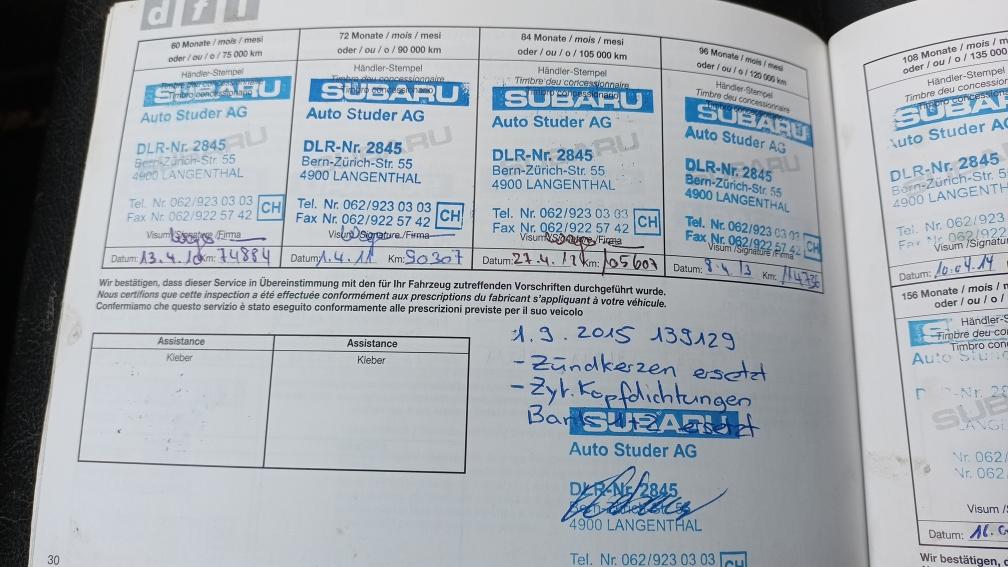 dfi
60 Monate / mois / mesi
oder / ou / o / 75 000 km
Händler-Stempel
Timbre du concessionnaire
Timbro concessionario
SUBARU
Auto Studer AG
DLR-Nr. 2845
Bern-Zürich-Str. 55
4900 LANGENTHAL
Tel. Nr. 062/923 03 03
Fax Nr. 062/922 57 42 CH
Visum/Signature/Firma
Datum: 13.4.10 Km: 74884
72 Monate / mois / mesi
oder / ou / o / 90 000 km
Händler-Stempel
Timbre du concessionnaire
Timbro concessionario
SUBARU
Auto Studer AG
DLR-Nr. 2845
Bern-Zürich-Str. 55
4900 LANGENTHAL
Tel. Nr. 062/923 03 03
Fax Nr. 062/922 57 42 CH
Visum/Signature/Firma
Datum: 1.4.11 Km: 90307
84 Monate / mois / mesi
oder / ou / o / 105 000 km
Händler-Stempel
Timbre du concessionnaire
Timbro concessionario
SUBARU
Auto Studer AG
DLR-Nr. 2845
Bern-Zürich-Str. 55
4900 LANGENTHAL
Tel. Nr. 062/923 03 03
Fax Nr. 062/922 57 42 CH
Visum/Signature/Firma
Datum: 27.4.12 Km: 105607
96 Monate / mois / mesi
oder / ou / o / 120 000 km
Händler-Stempel
Timbre du concessionnaire
Timbro concessionario
SUBARU
Auto Studer AG
DLR-Nr. 2845
Bern-Zürich-Str. 55
4900 LANGENTHAL
Tel. Nr. 062/923 03 03
Fax Nr. 062/922 57 42 CH
Visum/Signature/Firma
Datum: 8.4.13 Km: 114736
Wir bestätigen, dass dieser Service in Übereinstimmung mit den für Ihr Fahrzeug zutreffenden Vorschriften durchgeführt wurde.
Nous certifions que cette inspection a été effectuée conformément aux prescriptions du fabricant s'appliquant à votre véhicule.
Confermiamo che questo servizio è stato eseguito conformamente alle prescrizioni previste per il suo veicolo
Assistance
Kleber
Assistance
Kleber
1.9.2015 139129
- Zündkerzen ersetzt
- Zyl. Kopfdichtungen
Bank 1+2 ersetzt
SUBARU
Auto Studer AG
DLR-Nr. 2845
Bern-Zürich-Str. 55
4900 LANGENTHAL
Tel. Nr. 062/923 03 03 CH
30
108 Monate / m
oder / ou / o / 135 000
Händler-Stempel
Timbre du concession
SUBAR
Auto Studer A
DLR-Nr. 2845
Bern-Zürich-Str. 5
4900 LANGENT
Tel. Nr. 062/923
062/922
Visum/Signature
Datum: 10.04.14
156 Monate /
oder / ou / o /
Händler-S
Timbre du co
Timbro con
Nr. 062/
Nr. 062/
Visum /S
Datum: 16.
Wir bestätigen, d